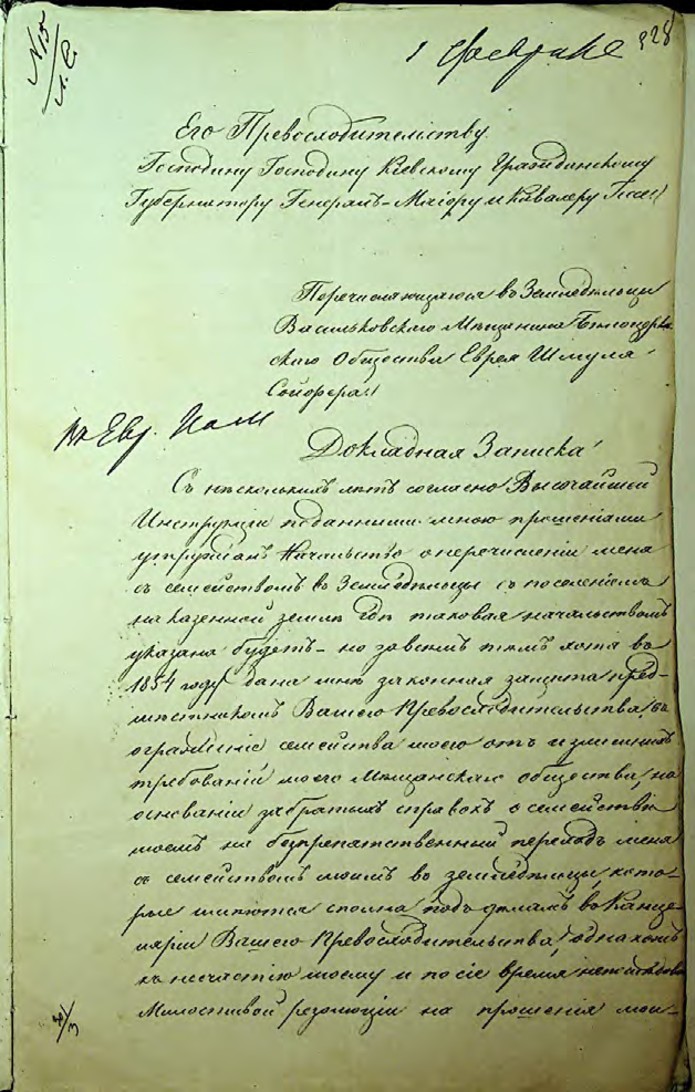 N 15
1 Февраля 328
Его Превосходительству
Господину Господину Кіевскому Гражданскому
Губернатору Генералъ-Маіору и Кавалеру Гессе!
Перечисляющагося въ Земледѣльцы
Васильковскаго Мѣщанина Бѣлоцерков-
скаго Общества Еврея Шмуля
Сойфера!
Докладная Записка!
Съ нѣсколькихъ лѣтъ согласно Высочайшей
Инструкціи поданными мною прошеніями
утруждалъ Начальство о перечисленіи меня
съ семействомъ въ Земледѣльцы съ поселеніемъ
на казенной землѣ гдѣ таковая начальствомъ
указана будетъ – но зовсемъ тѣмъ хотя въ
1854 году дана мнѣ законная защита пред-
мѣстникомъ Вашего Превосходительства, въ
огражденіе семейства моего отъ излишнихъ
требованій моего Мѣщанскаго общества, на
основаніи забратыхъ справокъ о семействѣ
моемъ на безпрепятственный переходъ меня
съ семействомъ моимъ въ земледѣльцы, кото-
рые имѣются сполна подъ дѣламъ въ Канце-
ляріи Вашего Превосходительства, однакожъ
къ несчастію моему и по сіе время
Милостивой резолюціи на прошенія мои-